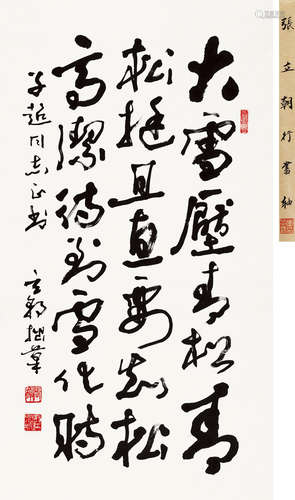 張立朝行書軸
大雪壓青松青
松挺且直要知松
高潔待到雪化時
同志正
立朝拙筆